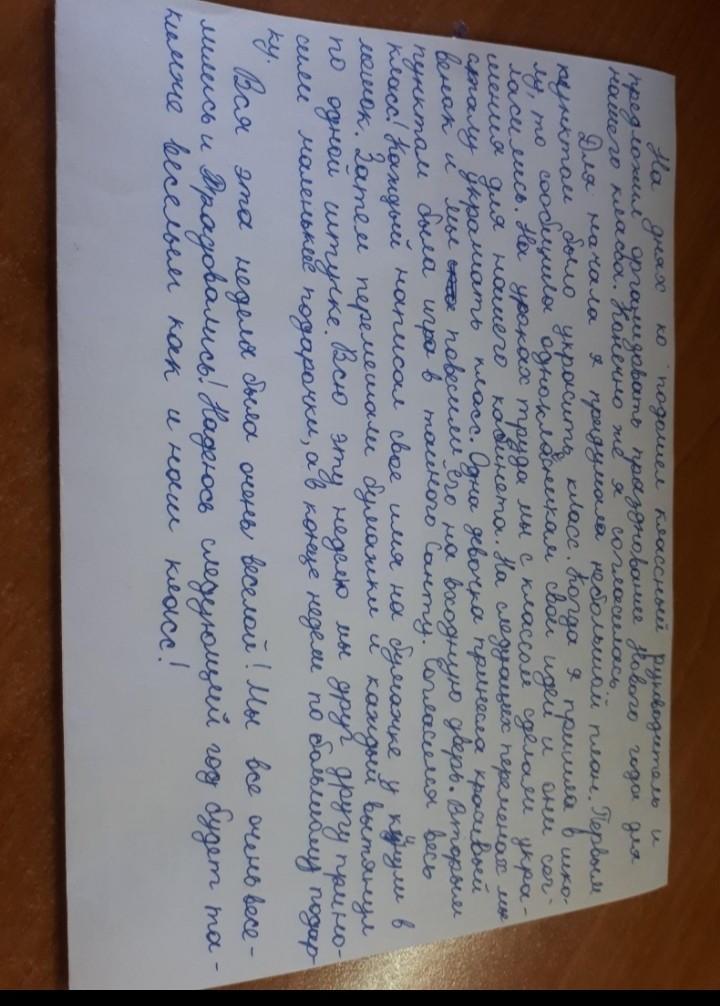 На днях ко подошел классный руководитель и
предложил организовать празднование Нового года для
нашего класса. Конечно же я согласилась.
Для начала я придумала небольшой план. Первым
пунктом было украсить класс. Когда я пришла в шко-
лу, то сообщила одноклассникам свои идеи и они сог-
ласились. На уроках труда мы с классом сделали укра-
шения для нашего кабинета. На следующих переменах мы
стали украшать класс. Одна девочка принесла красивый
венок и мы повесили его на входную дверь. Вторым
пунктом была игра в тайного Санту. Согласился весь
класс! Каждый написал свое имя на бумажке и кинули в
мешок. Затем перемешали бумажки и каждый вытянул
по одной штучке. Всю эту неделю мы друг другу прино-
сили маленькие подарочки, а в конце недели по большому подар-
ку.
Вся эта неделя была очень веселой! Мы все очень весе-
лились и радовались! Надеюсь следующий год будет та-
ким же веселым как и наш класс!